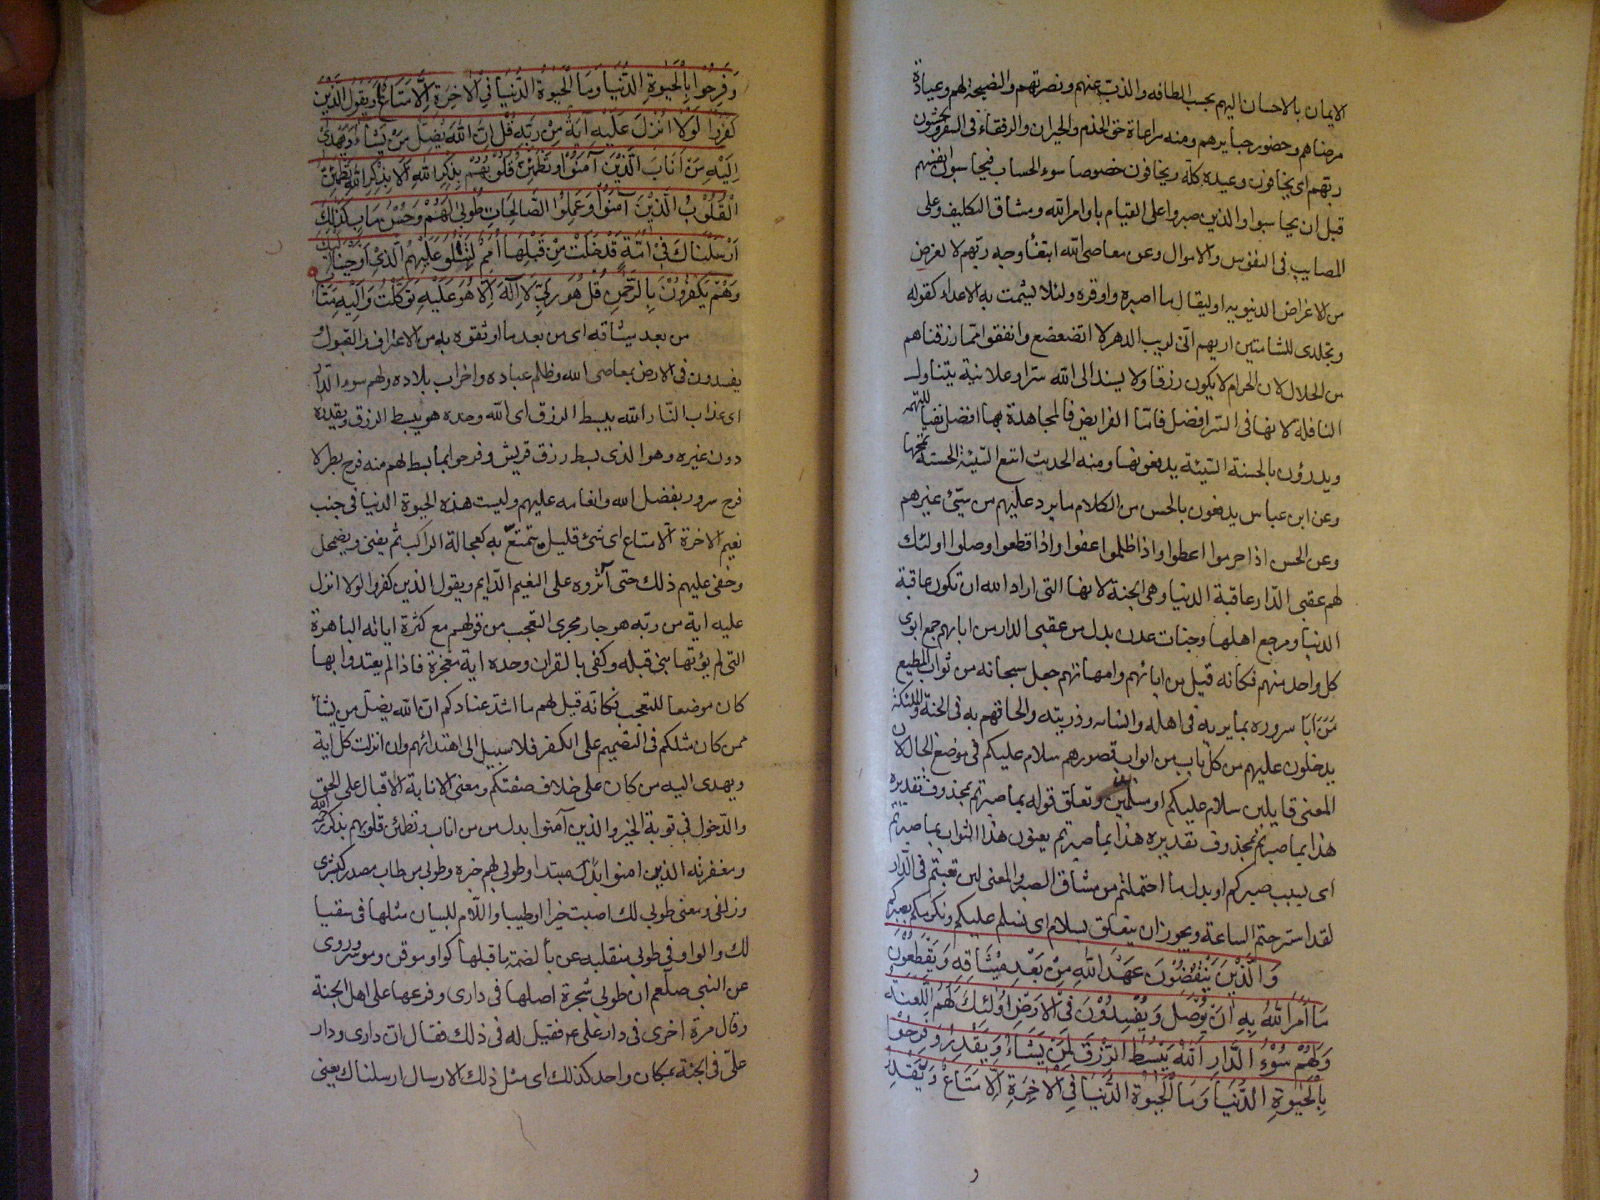 الايمان بالاحسان اليهم بحسب الطاقه والذب عنهم ونصرتهم والنصيحة لهم وعيادة
مرضاهم وحضور جنايزهم ومنه مراعاة حق الخدم والجيران والرفقاء فى السفر ويخشون
ربهم اى يخافون وعيده كله ويخافون خصوصا سوء الحساب فيحاسبون انفسهم
قبل ان يحاسبوا والذين صبروا على القيام باوامر الله ومشاق التكليف وعلى
المصايب فى النفوس والاموال وعن معاصى الله ابتغاء وجه ربهم لا لغرض
من الاغراض الدنيويه او ليقال ما اصبره واوقره ولئلا يشمت به الاعداء كقوله
وتجلدى للشامتين اريهم انى لريب الدهر لا اتضعضع وانفقوا مما رزقناهم
من الحلال لان الحرام لا يكون رزقا ولا يسند الى الله سرا وعلانية يتناول
النافلة لانها فى السر افضل فاما الفرايض فالمجاهدة بها افضل نفيا للتهمه
ويدرؤن بالحسنة السيئة يدفعونها ومنه الحديث اتبع السيئة الحسنة تمحها
وعن ابن عباس يدفعون بالحسن من الكلام ما يرد عليهم من سيئ غيرهم
وعن الحسن اذا حرموا اعطوا واذا ظلموا عفوا واذا قطعوا وصلوا اولئك
لهم عقبى الدار عاقبة الدنيا وهى الجنة لانها التى اراد الله ان تكون عاقبة
الدنيا ومرجع اهلها وجنات عدن بدل من عقبى الدار من ابائهم جمع ابوى
كل واحد منهم فكانه قيل من ابائهم وامهاتهم جعل سبحانه من ثواب المطيع
سروره بما يريه فى اهله وذريته والحاقهم به فى الجنة والملئكة
يدخلون عليهم من كل باب من ابواب قصورهم سلام عليكم فى موضع الحال لان
المعنى قايلين سلام عليكم او مسلمين وتعلق قوله بما صبرتم بمحذوف تقديره
هذا بما صبرتم بمحذوف تقديره هذا بما صبرتم يعنون هذا الثواب بما صبرتم
اى بسبب صبركم او بدل ما احتملتم من مشاق الصبر والمعنى لئن تعبتم فى الدار
لقد استرحتم الساعة ويجوز ان يتعلق بسلام اى نسلم عليكم ونكرمكم بصبركم
وَالَّذِيْنَ يَنْقُضُوْنَ عَهْدَ اللّٰهِ مِنْ بَعْدِ مِيْثَاقِهِ وَيَقْطَعُوْنَ
مَا اَمَرَ اللّٰهُ بِهِ اَنْ يُوْصَلَ وَيُفْسِدُوْنَ فِى الْاَرْضِ اُولٰئِكَ لَهُمُ اللَّعْنَةُ
وَلَهُمْ سُوْءُ الدَّارِ اَللّٰهُ يَبْسُطُ الرِّزْقَ لِمَنْ يَشَاءُ وَيَقْدِرُ وَفَرِحُوْا
بِالْحَيٰوةِ الدُّنْيَا وَمَا الْحَيٰوةُ الدُّنْيَا فِى الْاٰخِرَةِ اِلَّا مَتَاعٌ وَيَقْدِرُ
وَفَرِحُوْا بِالْحَيٰوةِ الدُّنْيَا وَمَا الْحَيٰوةُ الدُّنْيَا فِى الْاٰخِرَةِ اِلَّا مَتَاعٌ وَيَقُوْلُ الَّذِيْنَ
كَفَرُوْا لَوْلَا اُنْزِلَ عَلَيْهِ اٰيَةٌ مِنْ رَبِّهِ قُلْ اِنَّ اللّٰهَ يُضِلُّ مَنْ يَشَاءُ وَيَهْدِىْ
اِلَيْهِ مَنْ اَنَابَ الَّذِيْنَ آمَنُوْا وَتَطْمَئِنُّ قُلُوْبُهُمْ بِذِكْرِ اللّٰهِ اَلَا بِذِكْرِ اللّٰهِ تَطْمَئِنُّ
الْقُلُوْبُ الَّذِيْنَ آمَنُوْا وَعَمِلُوا الصَّالِحَاتِ طُوْبٰى لَهُمْ وَحُسْنُ مَاٰبٍ كَذٰلِكَ
اَرْسَلْنَاكَ فِىْ اُمَّةٍ قَدْ خَلَتْ مِنْ قَبْلِهَا اُمَمٌ لِتَتْلُوَ عَلَيْهِمُ الَّذِىْ اَوْحَيْنَا اِلَيْكَ
وَهُمْ يَكْفُرُوْنَ بِالرَّحْمٰنِ قُلْ هُوَ رَبِّىْ لَا اِلٰهَ اِلَّا هُوَ عَلَيْهِ تَوَكَّلْتُ وَاِلَيْهِ مَتَابِ
من بعد ميثاقه اى من بعد ما اوثقوه به من الاعتراف والقبول
يفسدون فى الارض بمعاصى الله وظلم عباده واخراب بلاده ولهم سوء الدار
اى عذاب النار الله يبسط الرزق اى الله وحده هو يبسط الرزق ويقدره
دون غيره وهو الذى بسط رزق قريش وفرحوا بما بسط لهم منه فرح بطر لا
فرح سرور بفضل الله وانعامه عليهم وليست هذه الحيوة الدنيا فى جنب
نعيم الاخرة الا متاع اى شئ قليل يتمتع به كعجالة الراكب ثم يفنى ويضمحل
وخفى عليهم ذلك حتى آثروه على النعيم الدايم ويقول الذين كفروا لولا انزل
عليه اية من ربه هو جار مجرى التعجب من قولهم مع كثرة اياته الباهرة
التى لم يؤتها نبى قبله وكفى بالقران وحده اية معجزة فاذا لم يعتدوا بها
كان موضعا للتعجب فكانه قيل لهم ما اشد عنادكم ان الله يضل من يشاء
ممن كان مثلكم فى التصميم على الكفر فلا سبيل الى اهتدائهم وان انزلت كل اية
ويهدى اليه من كان على خلاف صفتكم ومعنى الانابة الاقبال على الحق
والدخول فى توبة الخير والذين آمنوا بدل من من اناب وتطمئن قلوبهم بذكر رحمة الله
ومغفرته الذين امنوا مبتدا وطوبى لهم خبره وطوبى من طاب مصدر كبشرى
وزلفى ومعنى طوبى لك اصبت خيرا وطيبا واللام للبيان مثلها فى سقيا
لك والواو فى طوبى منقلبه عن يا لضمة ما قبلها كواو موقن وموسر وروى
عن النبى صلعم ان طوبى شجرة اصلها فى دارى وفرعها على اهل الجنة
وقال مرة اخرى فى دار على ع فقيل له فى ذلك فقال ان دارى ودار
على فى الجنة بمكان واحد كذلك اى مثل ذلك الارسال ارسلناك يعنى